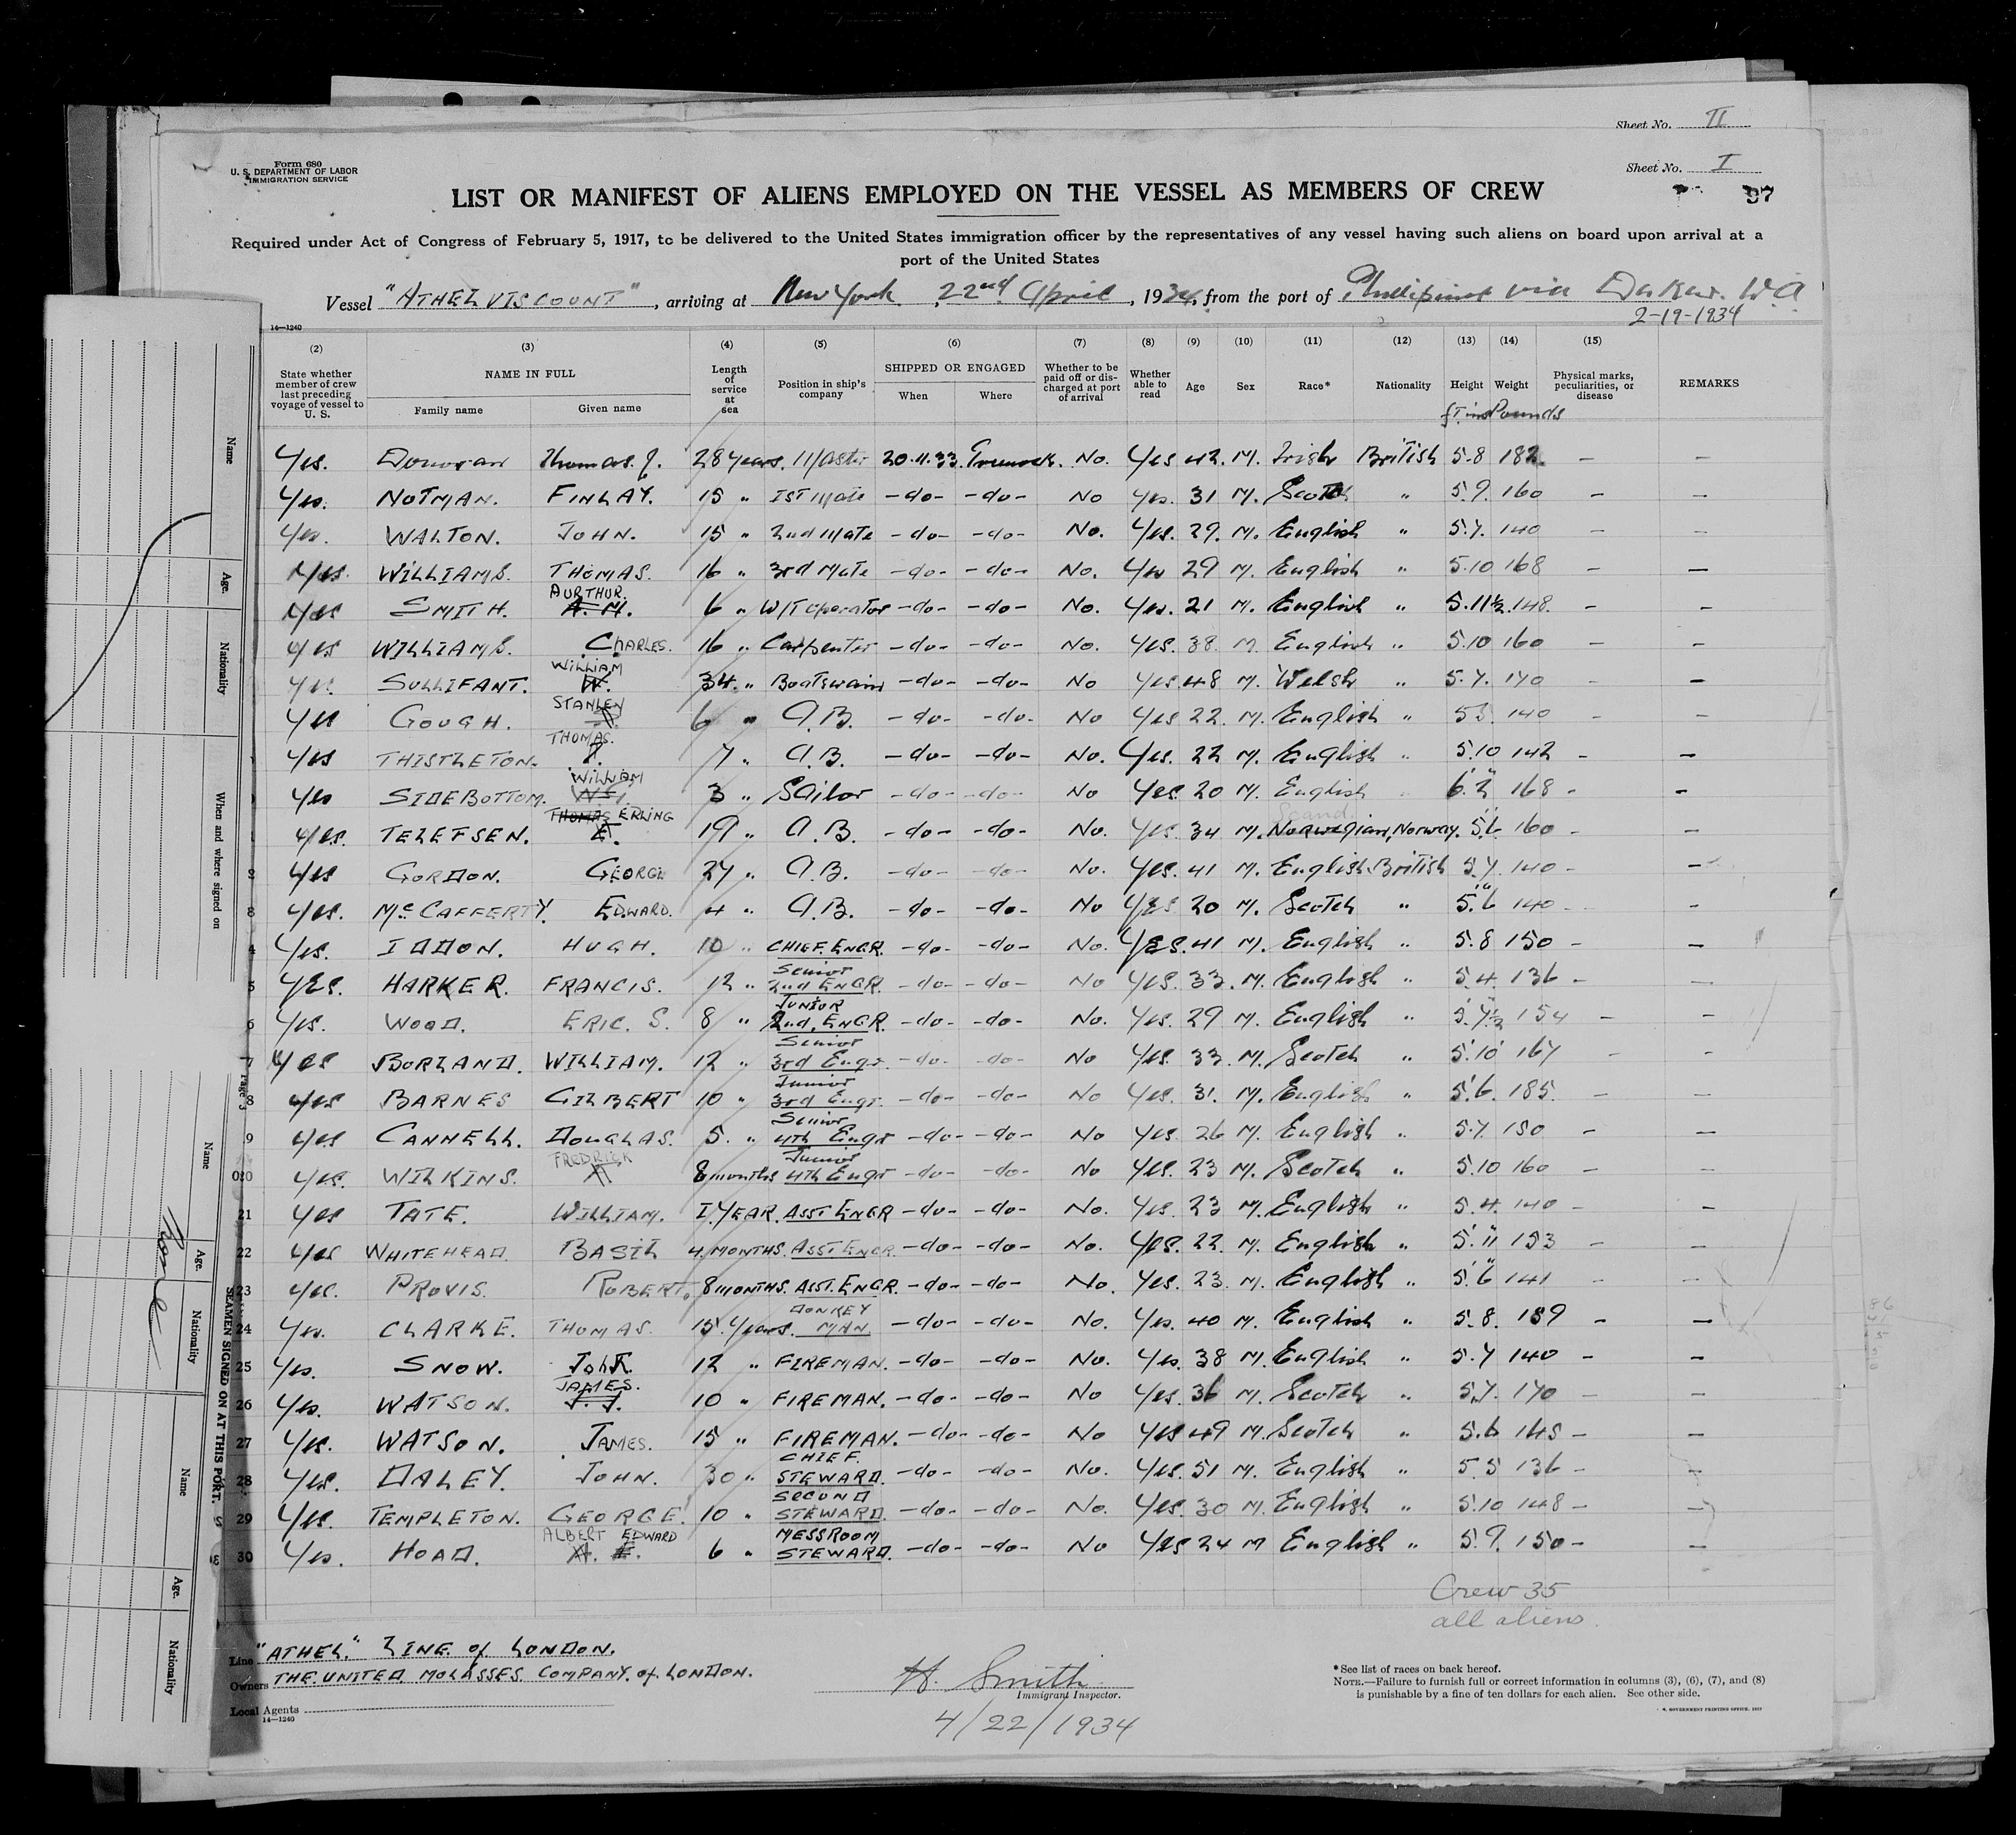 Sheet No. II
Form 680
U. S. DEPARTMENT OF LABOR
IMMIGRATION SERVICE
Sheet No. I
LIST OR MANIFEST OF ALIENS EMPLOYED ON THE VESSEL AS MEMBERS OF CREW
Required under Act of Congress of February 5, 1917, to be delivered to the United States immigration officer by the representatives of any vessel having such aliens on board upon arrival at a
port of the United States
Vessel "ATHEL VISCOUNT", arriving at New York 22nd April, 1934, from the port of Phillipines via Dakar. W.A.
2-19-1934
14—1240
(2) (3) (4) (5) (6) (7) (8) (9) (10) (11) (12) (13) (14) (15)
State whether member of crew last preceding voyage of vessel to U. S. NAME IN FULL Family name Given name Length of service at sea Position in ship's company SHIPPED OR ENGAGED When Where Whether to be paid off or discharged at port of arrival Whether able to read Age Sex Race* Nationality Height Weight Physical marks, peculiarities, or disease REMARKS
ft. ins Pounds
Yes. Donovan Thomas. J. 28 years. Master 20.11.33. Greenock. No. Yes 42. M. Irish British 5.8 182. — —
Yes. NOTMAN. FINLAY. 15 " 1ST Mate -do- -do- No Yes. 31 M. Scotch " 5.9. 160 — —
Yes. WALTON. JOHN. 15 " 2nd Mate -do- -do- No. Yes. 29. M. English " 5.7. 140 — —
Yes. WILLIAMS. THOMAS. 16 " 3rd Mate -do- -do- No. Yes 29 M. English " 5.10 168 — —
Yes SMITH. AURTHUR. A. M. 6 " W/T Operator -do- -do- No. Yes. 21 M. English " 5.11½. 148. — —
Yes WILLIAMS. CHARLES. 16 " Carpenter -do- -do- No. Yes. 38. M English " 5.10 160 — —
Yes SULLIFANT. WILLIAM W. 34. " Boatswain -do- -do- No Yes. 48 M. Welsh " 5.7. 170 — —
Yes GOUGH. STANLEY 6 " A.B. -do- -do- No Yes 22. M. English " 5 3. 140 — —
Yes THISTLETON. THOMAS. T. 7 " A.B. -do- -do- No. Yes. 22 M. English " 5.10 142 — —
Yes SIDEBOTTOM. WILLIAM 3 " Sailor -do- -do- No Yes. 20 M. English 6'.2" 168 — —
Scand.
Yes. TELEFSEN. THOMAS ERLING E. 19 " A.B. -do- -do- No. Yes. 34 M. Norwegian, Norway. 5.6. 160 — —
Yes GORDON. GEORGE 27 " A.B. -do- -do- No. Yes. 41 M. English British 5.7. 140 — —
Yes. McCAFFERTY. EDWARD. 4 " A.B. -do- -do- No Yes 20 M. Scotch " 5'.6" 140 — —
4 Yes. IDDON. HUGH. 10 " CHIEF. ENGR. -do- -do- No. Yes. 41 M. English " 5.8 150 — —
5 Yes. HARKER. FRANCIS. 12 " Senior 2nd ENGR. -do- -do- No Yes. 33. M. English " 5.4. 136 — —
6 Yes. WOOD. ERIC. S. 8 " JUNIOR 2nd. ENGR. -do- -do- No. Yes. 29 M. English " 5'.7½" 154 — —
7 Yes BORLAND. WILLIAM. 12 " Senior 3rd Engr. -do- -do- No Yes. 33. M. Scotch " 5'.10' 167 — —
8 Yes BARNES GILBERT 10 " Junior 3rd Engr. -do- -do- No Yes. 31. M. English " 5'.6. 185. — —
9 Yes CANNELL. DOUGLAS. 5. " Senior 4th Engr -do- -do- No Yes. 26 M. English " 5.7. 150 — —
20 Yes. WILKINS. FREDRICK 8 months Junior 4th Engr -do- -do- No Yes. 23 M. Scotch " 5.10 160 — —
21 Yes TATE. WILLIAM. 1. YEAR. ASST ENGR -do- -do- No. Yes. 23 M. English " 5.4. 140 — —
22 Yes WHITEHEAD. BASIL 4. MONTHS. ASST ENGR. -do- -do- No. Yes. 22. M. English " 5'.11" 153 — —
23 Yes. PROVIS. ROBERT. 8 MONTHS. ASST. ENGR. -do- -do- No. Yes. 23. M. English " 5'.6" 141 — —
24 Yes. CLARKE. THOMAS. 15. Years. DONKEY MAN -do- -do- No. Yes. 40 M. English " 5.8. 159 — —
25 Yes. SNOW. John. 12 " FIREMAN. -do- -do- No. Yes. 38 M. English " 5.7 140 — —
26 Yes. WATSON. JAMES. J. J. 10 " FIREMAN. -do- -do- No Yes. 36 M. Scotch " 5.7. 170 — —
27 Yes. WATSON. JAMES. 15 " FIREMAN. -do- -do- No Yes 49 M. Scotch " 5.6 145 — —
28 Yes. DALEY. JOHN. 30 " CHIEF. STEWARD. -do- -do- No. Yes. 51 M. English " 5.5 136 — —
29 Yes. TEMPLETON. GEORGE. 10 " SECOND STEWARD. -do- -do- No. Yes. 30 M. English " 5.10 148 — —
30 Yes. HOAD. ALBERT EDWARD A. E. 6 " MESSROOM STEWARD. -do- -do- No Yes 24 M English " 5.9. 150 — —
Crew 35
all aliens.
Line "ATHEL" LINE of LONDON.
Owners THE UNITED MOLASSES COMPANY. of LONDON.
Local Agents
14—1240
H. Smith
Immigrant Inspector.
4/22/1934
*See list of races on back hereof.
NOTE.—Failure to furnish full or correct information in columns (3), (6), (7), and (8)
is punishable by a fine of ten dollars for each alien. See other side.
Name
Age.
Nationality
When and where signed on
Page 3
SEAMEN SIGNED ON AT THIS PORT.
Name
Age.
Nationality
None
Name
Age.
Nationality